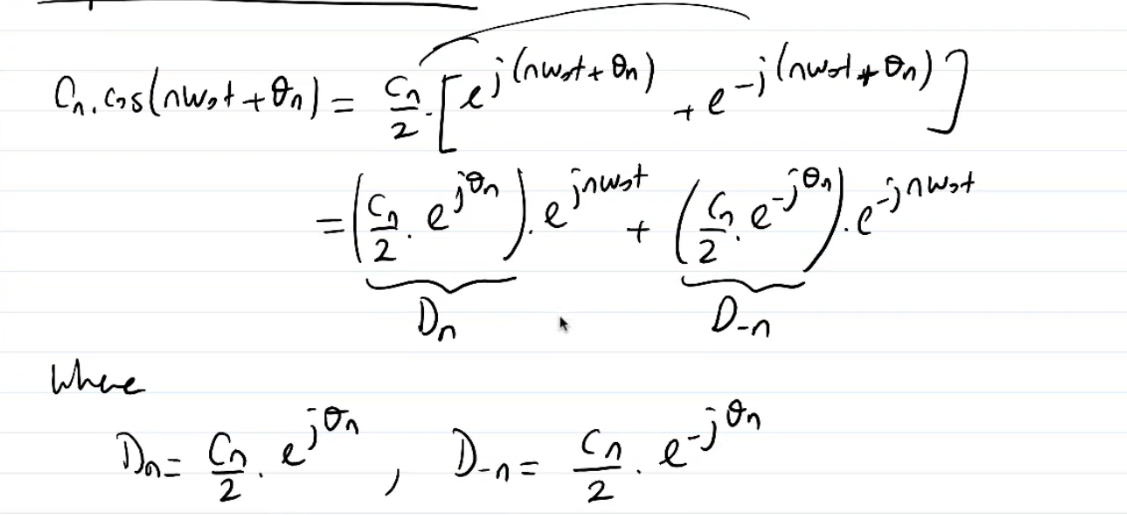 Cn.cos(nω₀t+θn) = Cn/2.[e^j(nω₀t+θn) + e^-j(nω₀t+θn)]
= (Cn/2 . e^jθn).e^jnω₀t + (Cn/2 . e^-jθn).e^-jnω₀t
Dn D-n
Where
Dn = Cn/2 . e^jθn , D-n = Cn/2 . e^-jθn